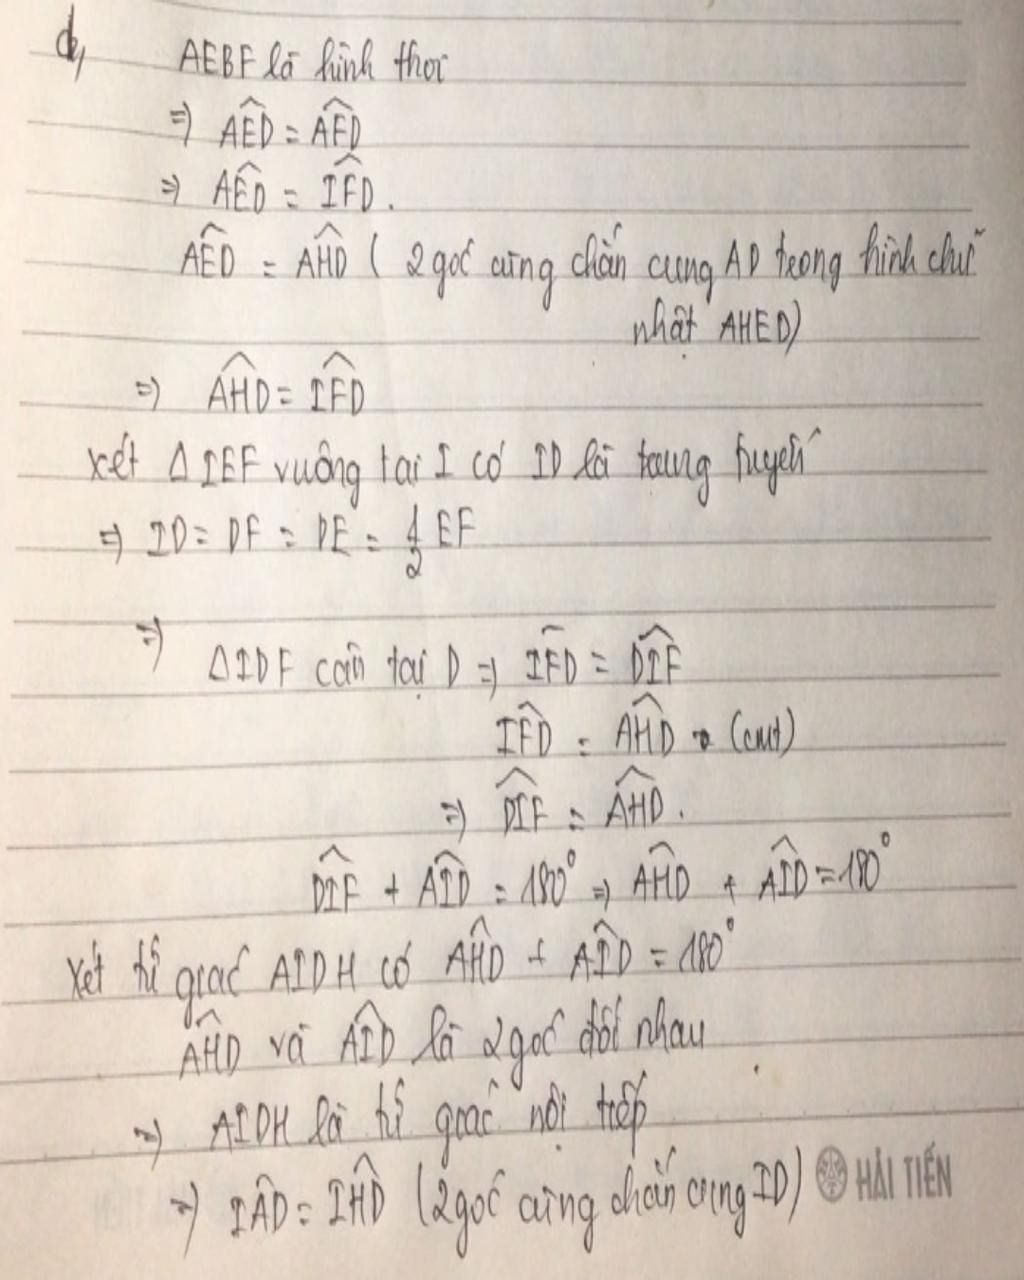 d, AEBF là hình thoi
⇒ AÊD = AF̂D
⇒ AÊD = IF̂D.
AÊD = AĤD ( 2 góc cùng chắn cung AD trong hình chữ
nhật AHED)
⇒ AĤD = IF̂D
Xét Δ IEF vuông tại I có ID là trung tuyến
⇒ ID = DF = DE = 1/2 EF
⇒ Δ IDF cân tại D ⇒ IF̂D = DÎF
IF̂D = AĤD (cmt)
⇒ DÎF = AĤD.
DÎF + AÎD = 180° ⇒ AĤD + AÎD = 180°
Xét tứ giác AIDH có AĤD + AÎD = 180°
AĤD và AÎD là 2 góc đối nhau
⇒ AIDH là tứ giác nội tiếp
⇒ IÂD = IĤD (2 góc cùng chắn cung ID)
HẢI TIẾN